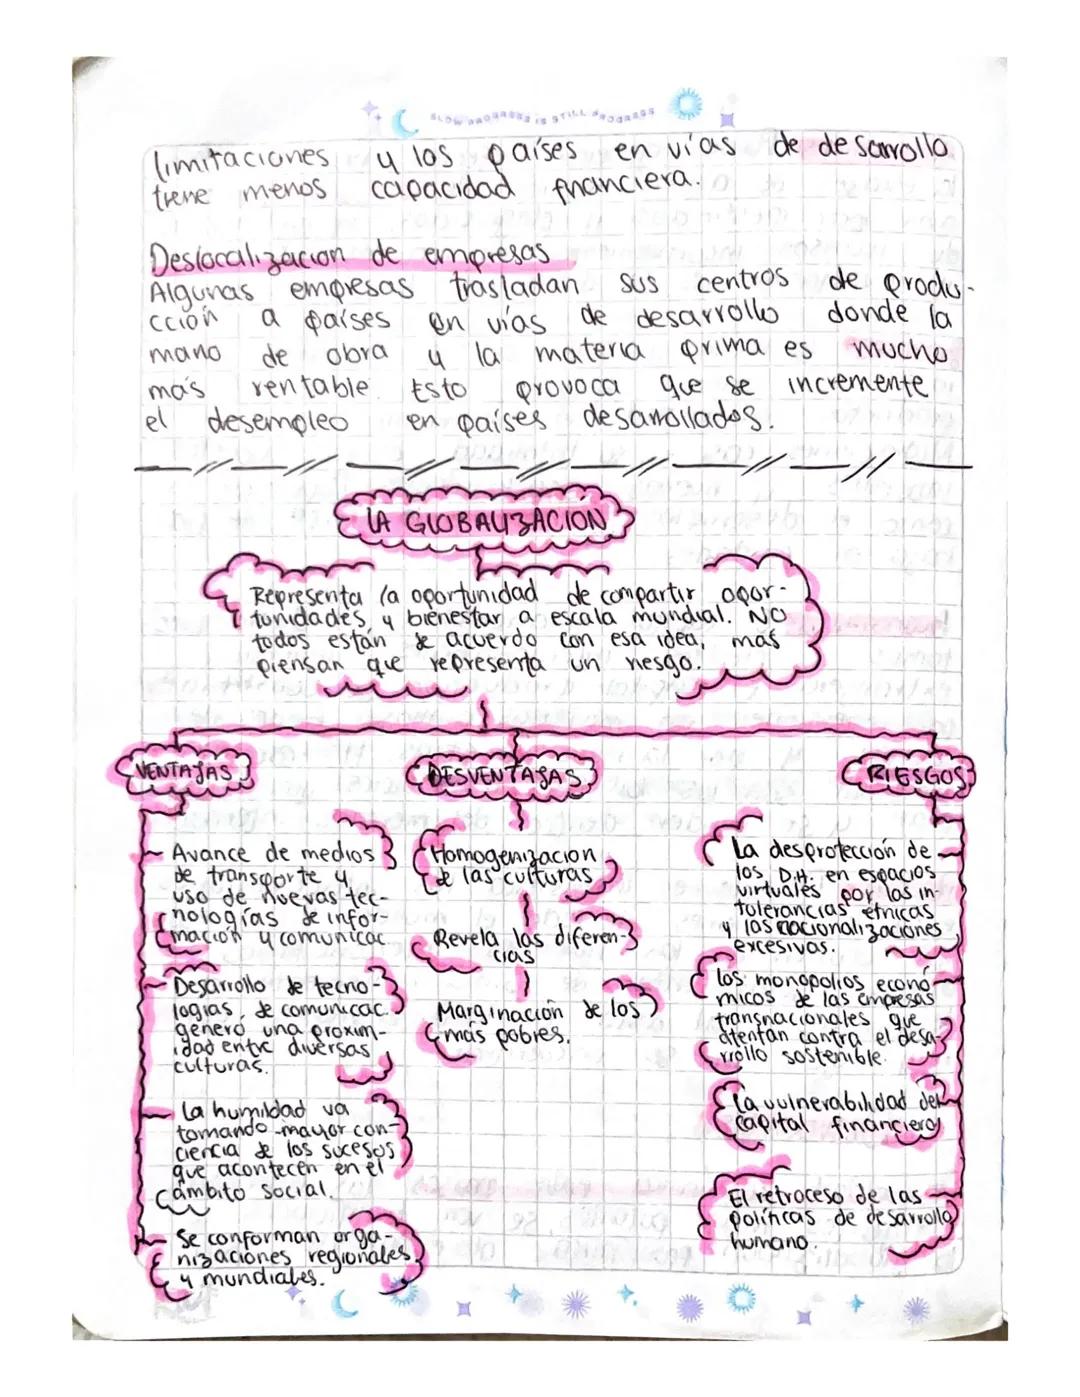 SLOW PROGRESS IS STILL PROGRESS
limitaciones y los países en vías de desarrollo
tiene menos capacidad financiera.
Deslocalizacion de empresas
Algunas empresas trasladan sus centros de produ-
cción a países en vías de desarrollo donde la
mano de obra y la materia prima es mucho
más rentable. Esto provoca que se incremente
el desempleo en países desarrollados.
LA GLOBALIZACIÓN
Representa la oportunidad de compartir opor-
tunidades y bienestar a escala mundial. NO
todos están de acuerdo con esa idea, más
piensan que representa un riesgo.
VENTAJAS
Avance de medios
de transporte y
uso de nuevas tec-
nologías de infor-
mación y comunicac
Desarrollo de tecno-
logias, de comunicac.
generó una proxim-
idad entre diversas
culturas.
La humildad va
tomando mayor con-
ciencia de los sucesos
que acontecen en el
ámbito social.
Se conforman orga-
nizaciones regionales
y mundiales.
DESVENTAJAS
Homogenizacion
de las culturas
Revela las diferen-
cias
Marginación de los
más pobres.
RIESGOS
La desprotección de
los D.H. en espacios
virtuales por las in-
tolerancias étnicas
y las nacionalizaciones
excesivas.
los monopolios econó-
micos de las empresas
transnacionales que
atentan contra el desa-
rrollo sostenible.
La vulnerabilidad del
capital financiero
El retroceso de las
políticas de desarrollo
humano.